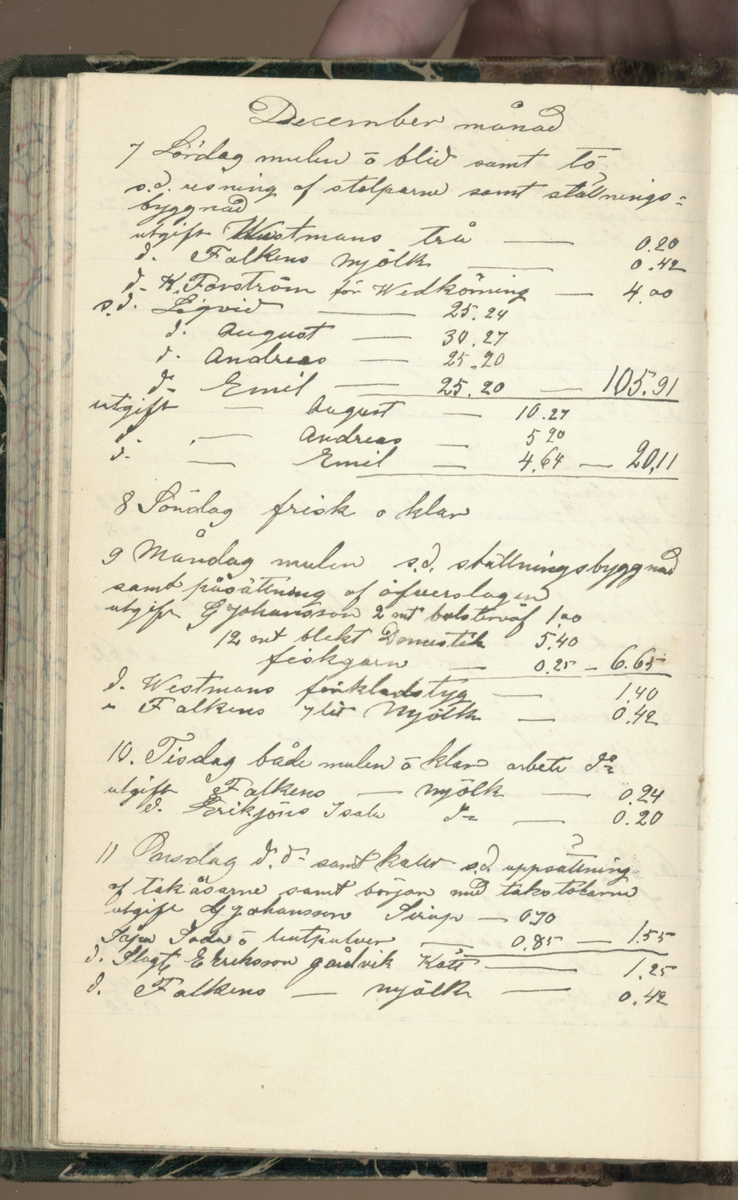 December månad
7 Lördag mulen o blid samt tö
s.d. resning af stolparne samt ställnings-
byggnad
utgift Westmans trå — 0.20
d. Falkens mjölk — 0.42
d- K. Forström för Wedkörning — 4.00
s.d. Ligvid — 25.24
d. August — 30.27
d. Andreas — 25.20
d- Emil — 25.20 — 105.91
utgift — August — 10.27
d. — Andreas — 5 20
d- — Emil — 4.64 — 20,11
8 Söndag frisk o klar
9 Måndag mulen s.d. ställningsbyggnad
samt påsättning af öfverslagen
utgift G Johansson 2 mt bolstervaf 1,00
12 mt blekt Domestik 5.40
fiskgarn — 0.25 — 6.65
d. Westmans förklädstyg — 1,40
" Falkens 7 lit Mjölk — 0.42
10. Tisdag både mulen o klar arbete do
utgift Falkens — mjölk — 0.24
d. Erikjöns Isak d= — 0.20
11 Onsdag d. d- samt kallt s.d. uppsättning
af takåsarne samt början med takstolarne
utgift G Johansson Sirap — 0.70
Såpa Soda o — 0.85 — 1.55
d. Slagt. E Eriksson gårdvik Kött — 1.25
d. Falkens — mjölk — 0.42